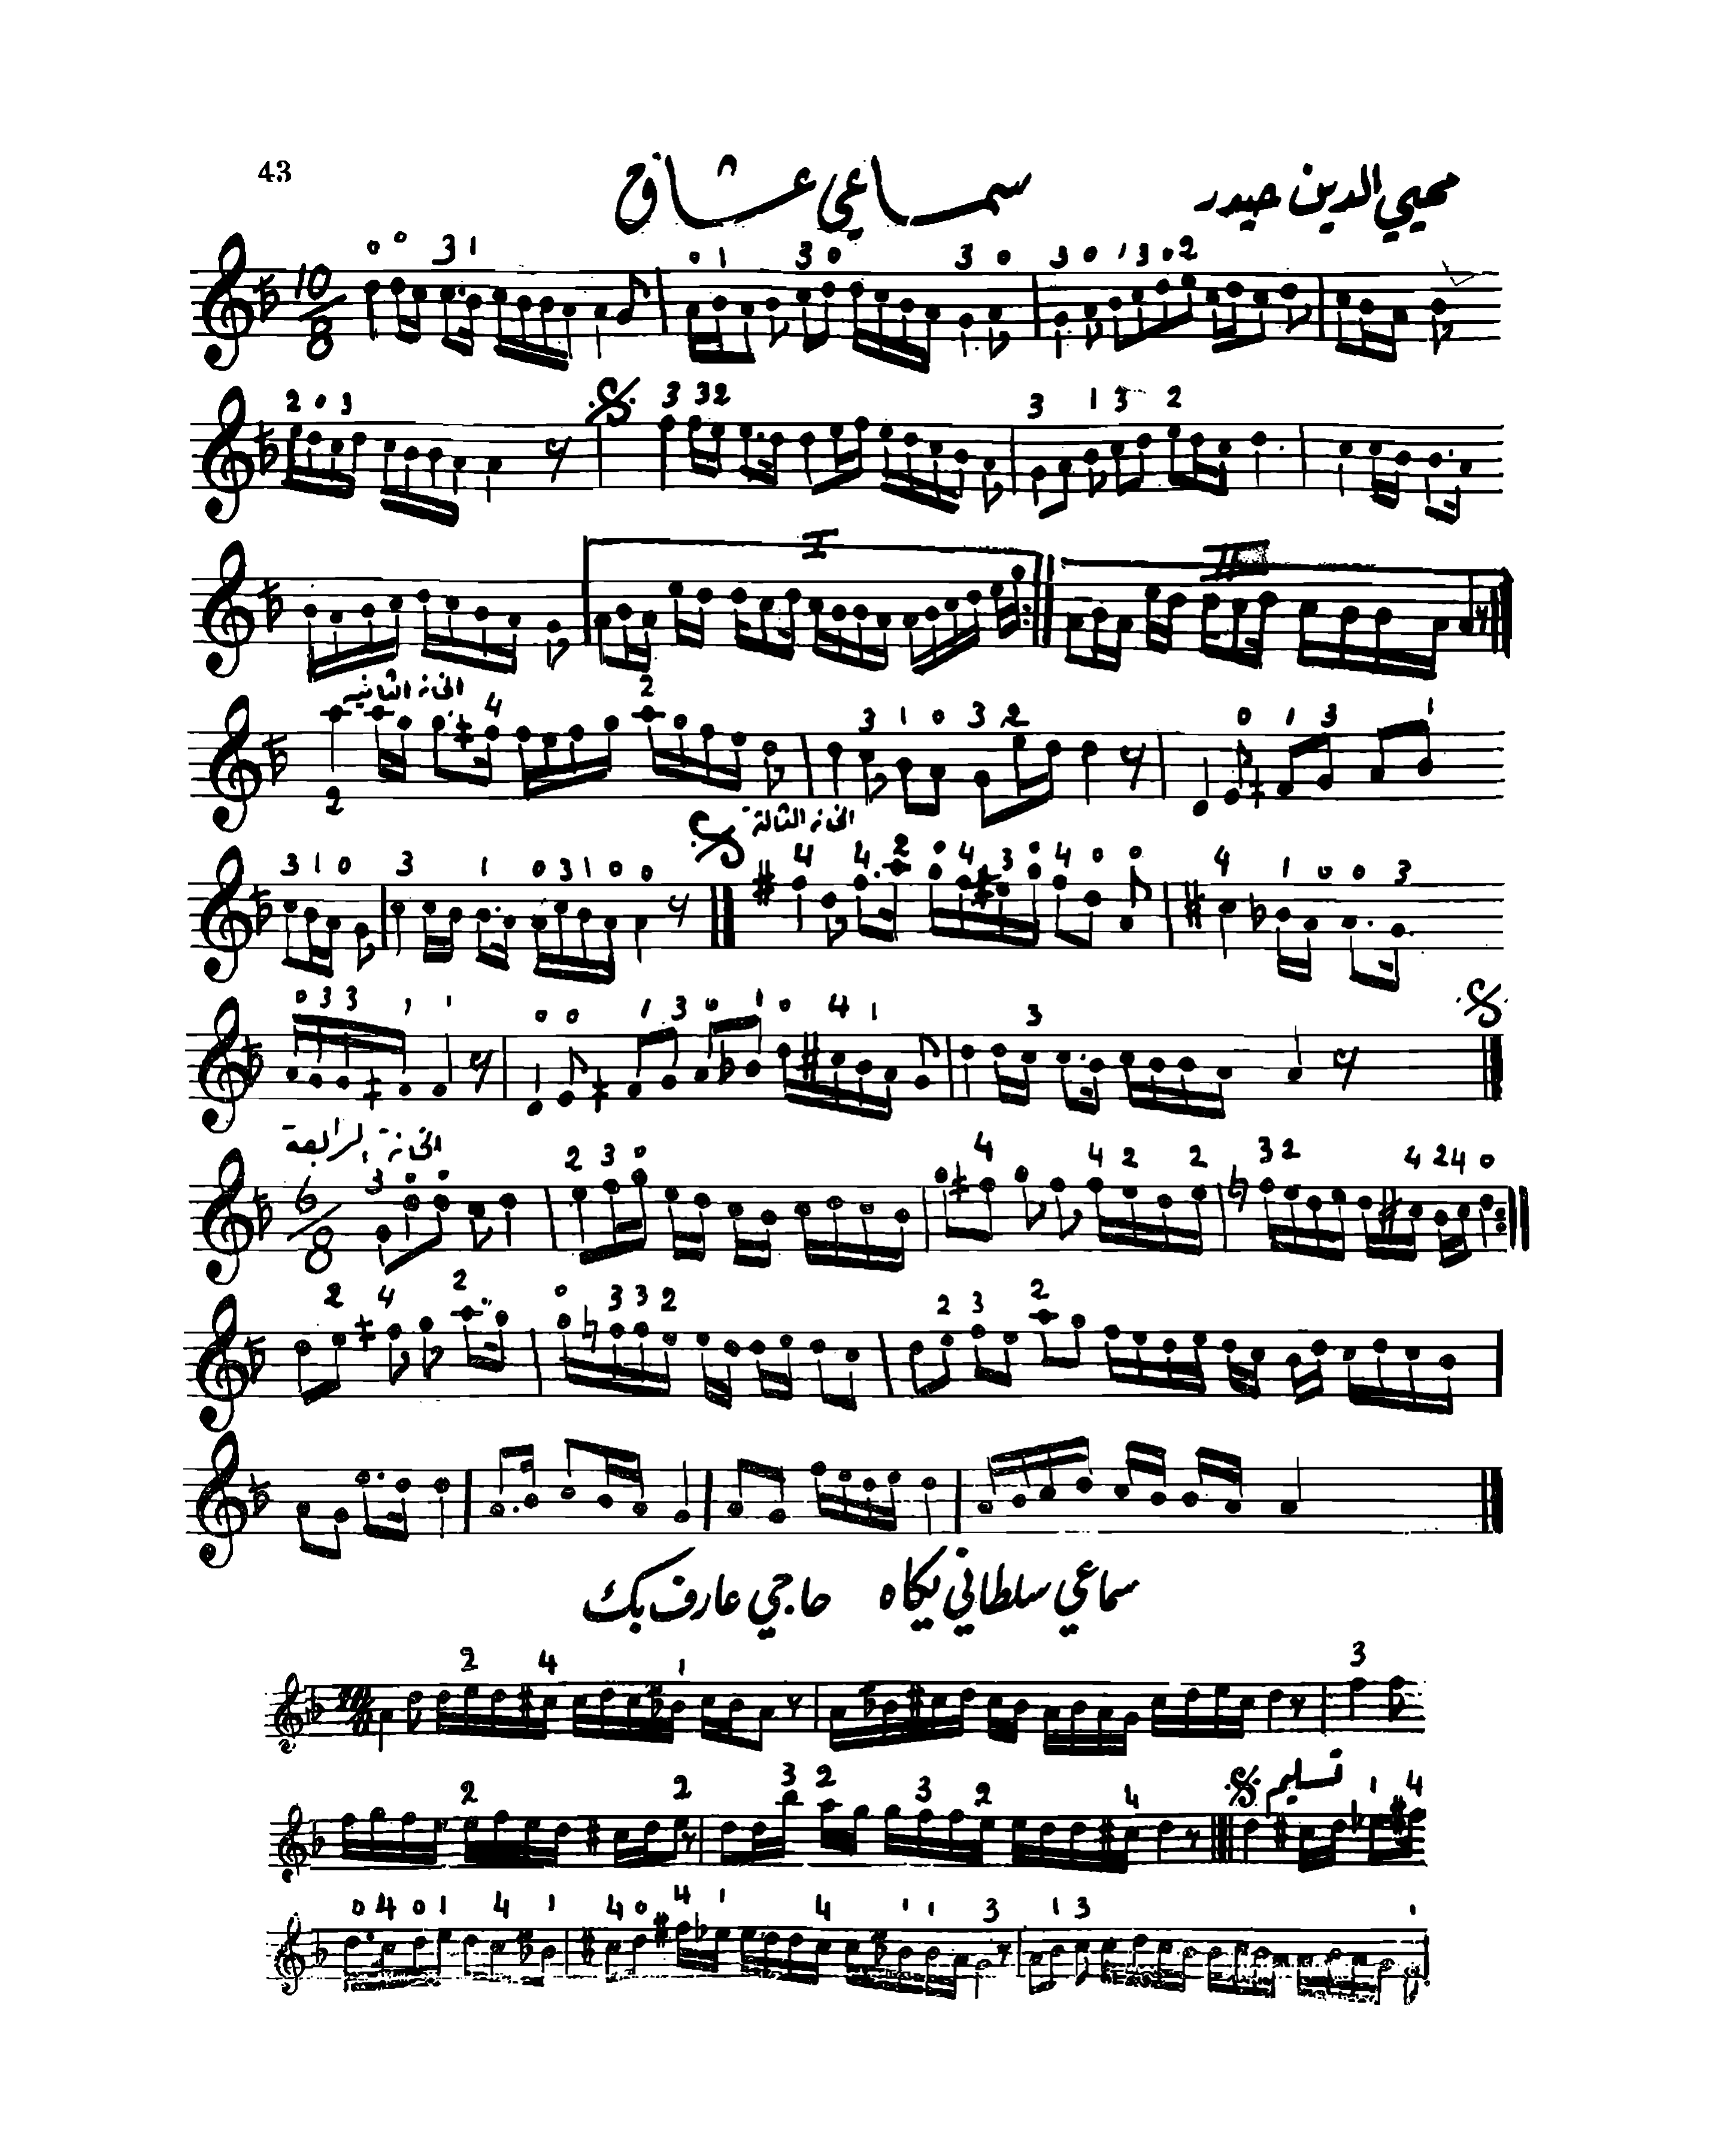 43
سماعي عشاق
محيي الدين حيدر
10/8
الخانة الثانية
الخانة الثالثة
الخانة الرابعة
6/8
سماعي سلطاني يكاه حاجي عارف بك
تسليم